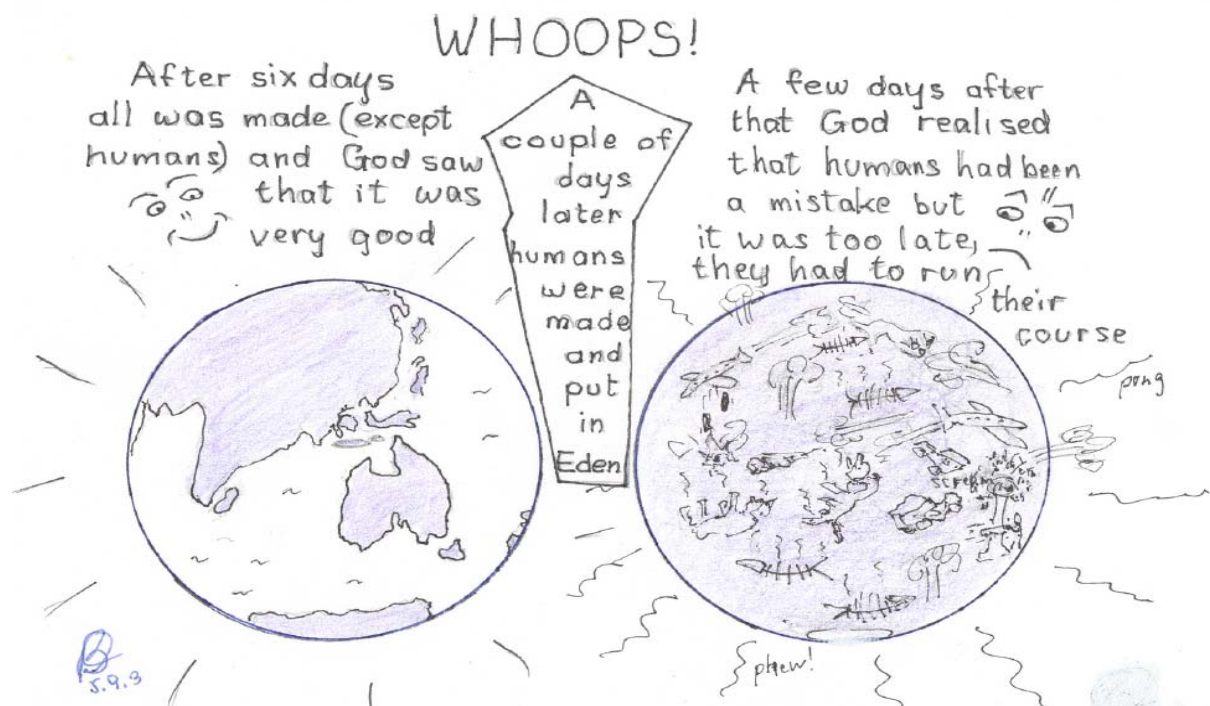 WHOOPS!
After six days
all was made (except
humans) and God saw
that it was
very good
A
couple of
days
later
humans
were
made
and
put
in
Eden
A few days after
that God realised
that humans had been
a mistake but
it was too late,
they had to run
their
course
pong
scream
phew!
5.9.3